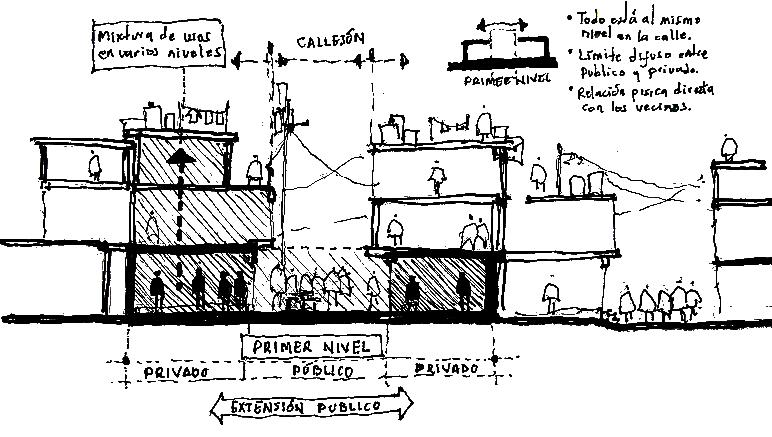 Mixtura de usos
en varios niveles
CALLEJÓN
PRIMER NIVEL
• Todo está al mismo
nivel en la calle.
• Límite difuso entre
Publico y privado.
• Relación física directa
con los vecinos.
PRIMER NIVEL
PRIVADO
PÚBLICO
PRIVADO
EXTENSIÓN PUBLICO